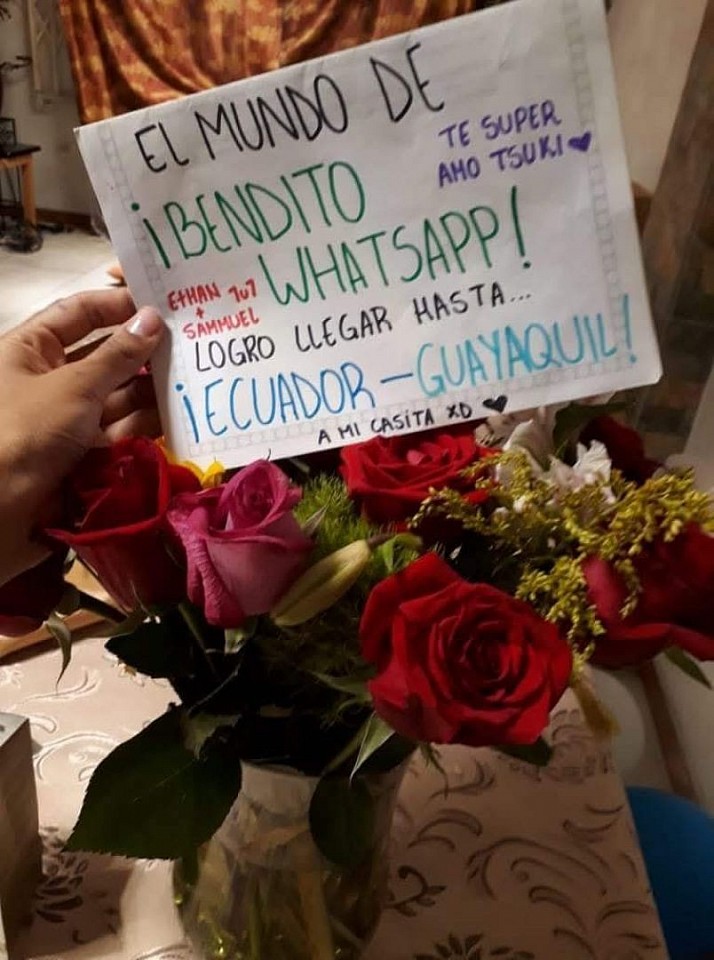 EL MUNDO DE
TE SUPER
AMO TSUKI
¡BENDITO
WHATSAPP!
ETHAN 7u7
+
SAMMUEL
LOGRO LLEGAR HASTA...
¡ECUADOR-GUAYAQUIL!
A MI CASITA XD